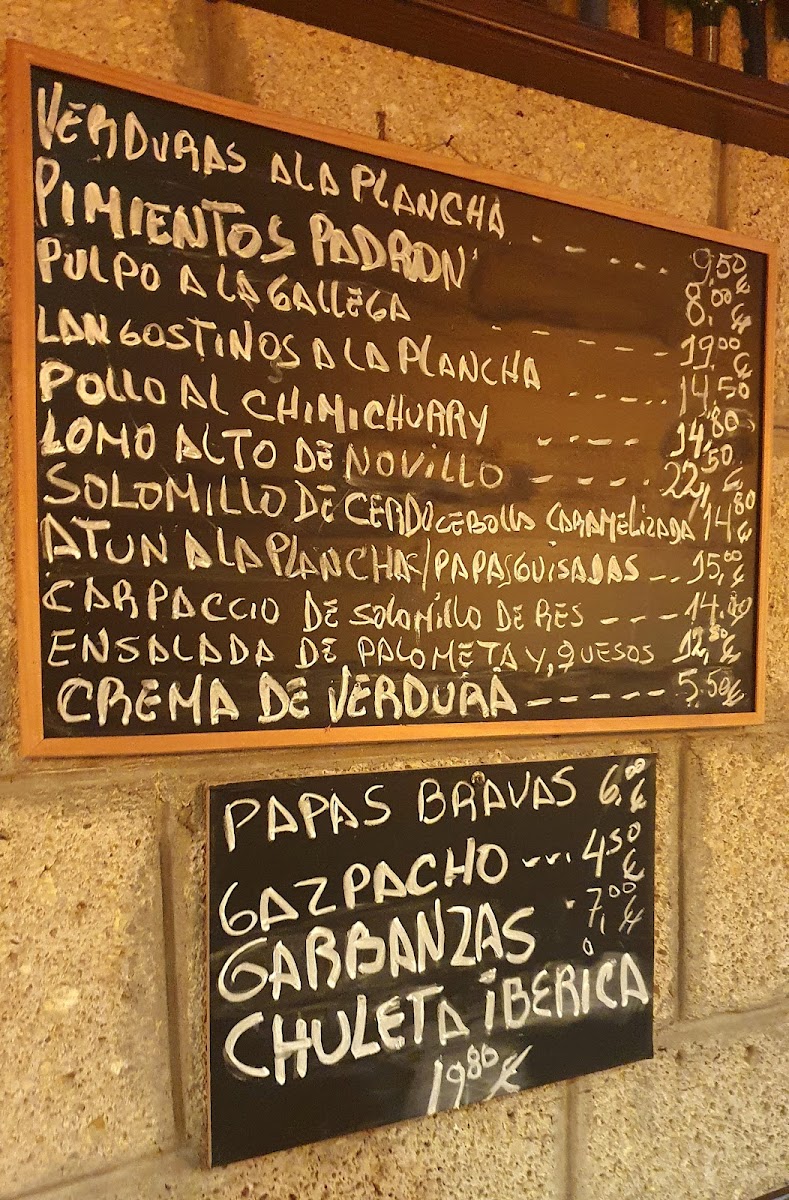 VERDURAS A LA PLANCHA ...... 9,50 €
PIMIENTOS PADRON' 8,00 €
PULPO A LA GALLEGA ...... 19,00 €
LANGOSTINOS A LA PLANCHA ..... 14,50
POLLO AL CHIMICHURRY .... 14,80
LOMO ALTO DE NOVILLO .... 22,50 €
SOLOMILLO DE CERDO CEBOLLA CARAMELIZADA 14,80 €
ATUN A LA PLANCHA/PAPAS GUISADAS .. 15,00 €
CARPACCIO DE SOLOMILLO DE RES --- 14.
ENSALADA DE PALOMETA Y, QUESOS 12,80 €
CREMA DE VERDURA ----- 5.50€
PAPAS BRAVAS 6,00 €
GAZPACHO ... 4,50 €
GARBANZAS . 7,00 €
CHULETA IBERICA
19,80 €